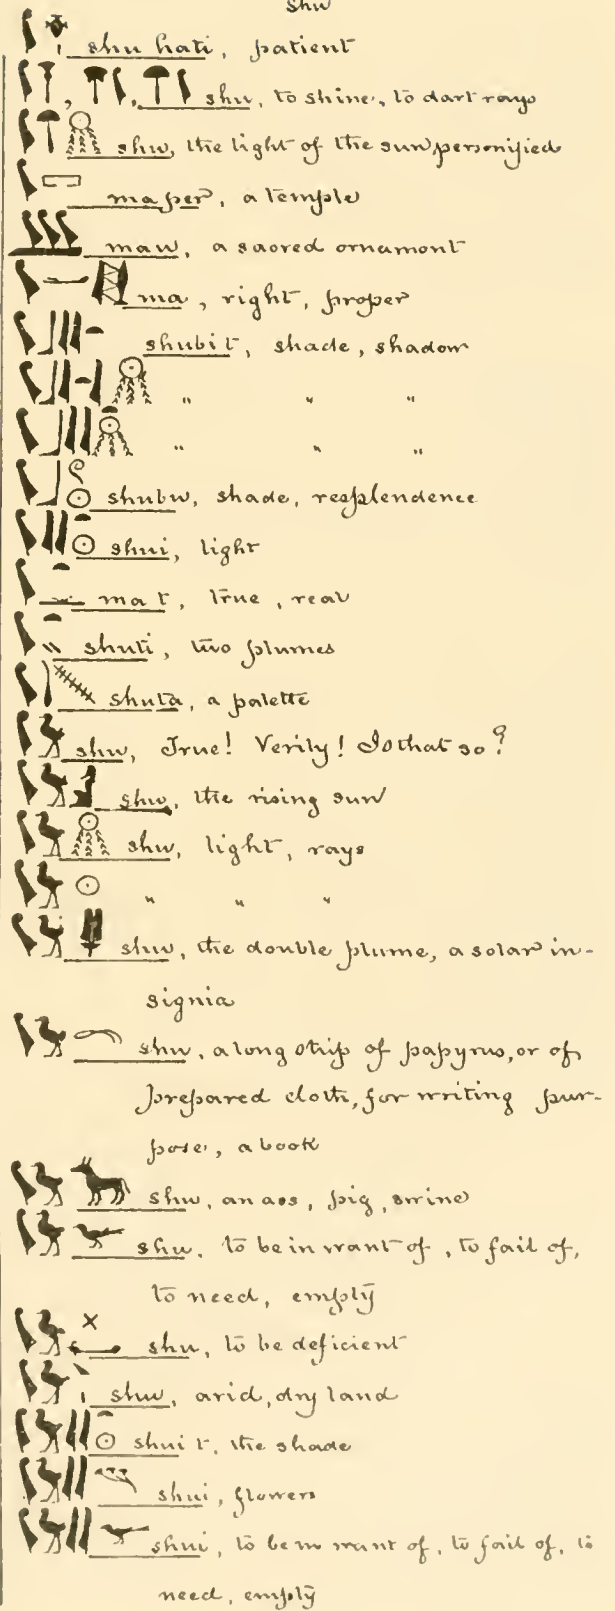 shu
shu hati, patient
shu, to shine, to dart rays
shu, the light of the sun personified
ma per, a temple
mau, a sacred ornament
ma, right, proper
shubit, shade, shadow
" " "
" " "
shubu, shade, resplendence
shui, light
mat, true, real
shuti, two plumes
shuta, a palette
shu, True! Verily! Is that so?
shu, the rising sun
shu, light, rays
" " "
shu, the double plume, a solar in-
signia
shu, a long strip of papyrus, or of
prepared cloth, for writing pur-
pose, a book
shu, an ass, pig, swine
shu, to be in want of, to fail of,
to need, empty
shu, to be deficient
shu, arid, dry land
shuit, the shade
shui, flowers
shui, to be in want of, to fail of, to
need, empty